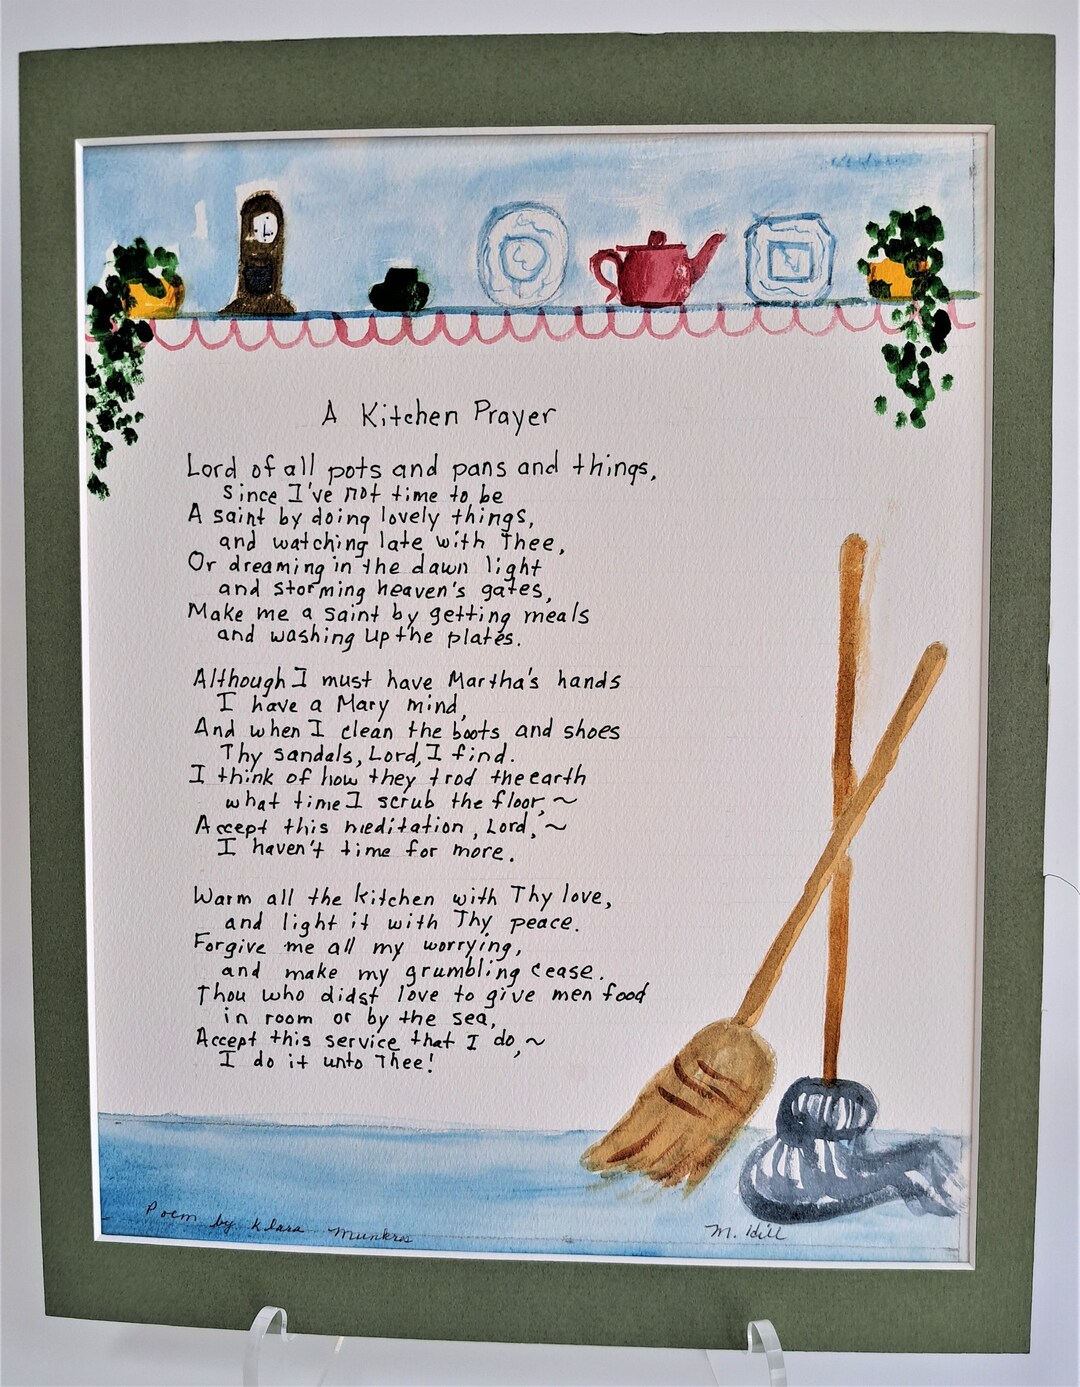 A Kitchen Prayer
Lord of all pots and pans and things,
since I've not time to be
A saint by doing lovely things,
and watching late with Thee,
Or dreaming in the dawn light
and storming heaven's gates,
Make me a saint by getting meals
and washing up the plates.
Although I must have Martha's hands
I have a Mary mind,
And when I clean the boots and shoes
Thy sandals, Lord, I find.
I think of how they trod the earth
what time I scrub the floor, ~
Accept this meditation, Lord, ~
I haven't time for more.
Warm all the kitchen with Thy love,
and light it with Thy peace.
Forgive me all my worrying,
and make my grumbling cease.
Thou who didst love to give men food
in room or by the sea,
Accept this service that I do, ~
I do it unto Thee!
Poem by Klara Munkres
M. Hill